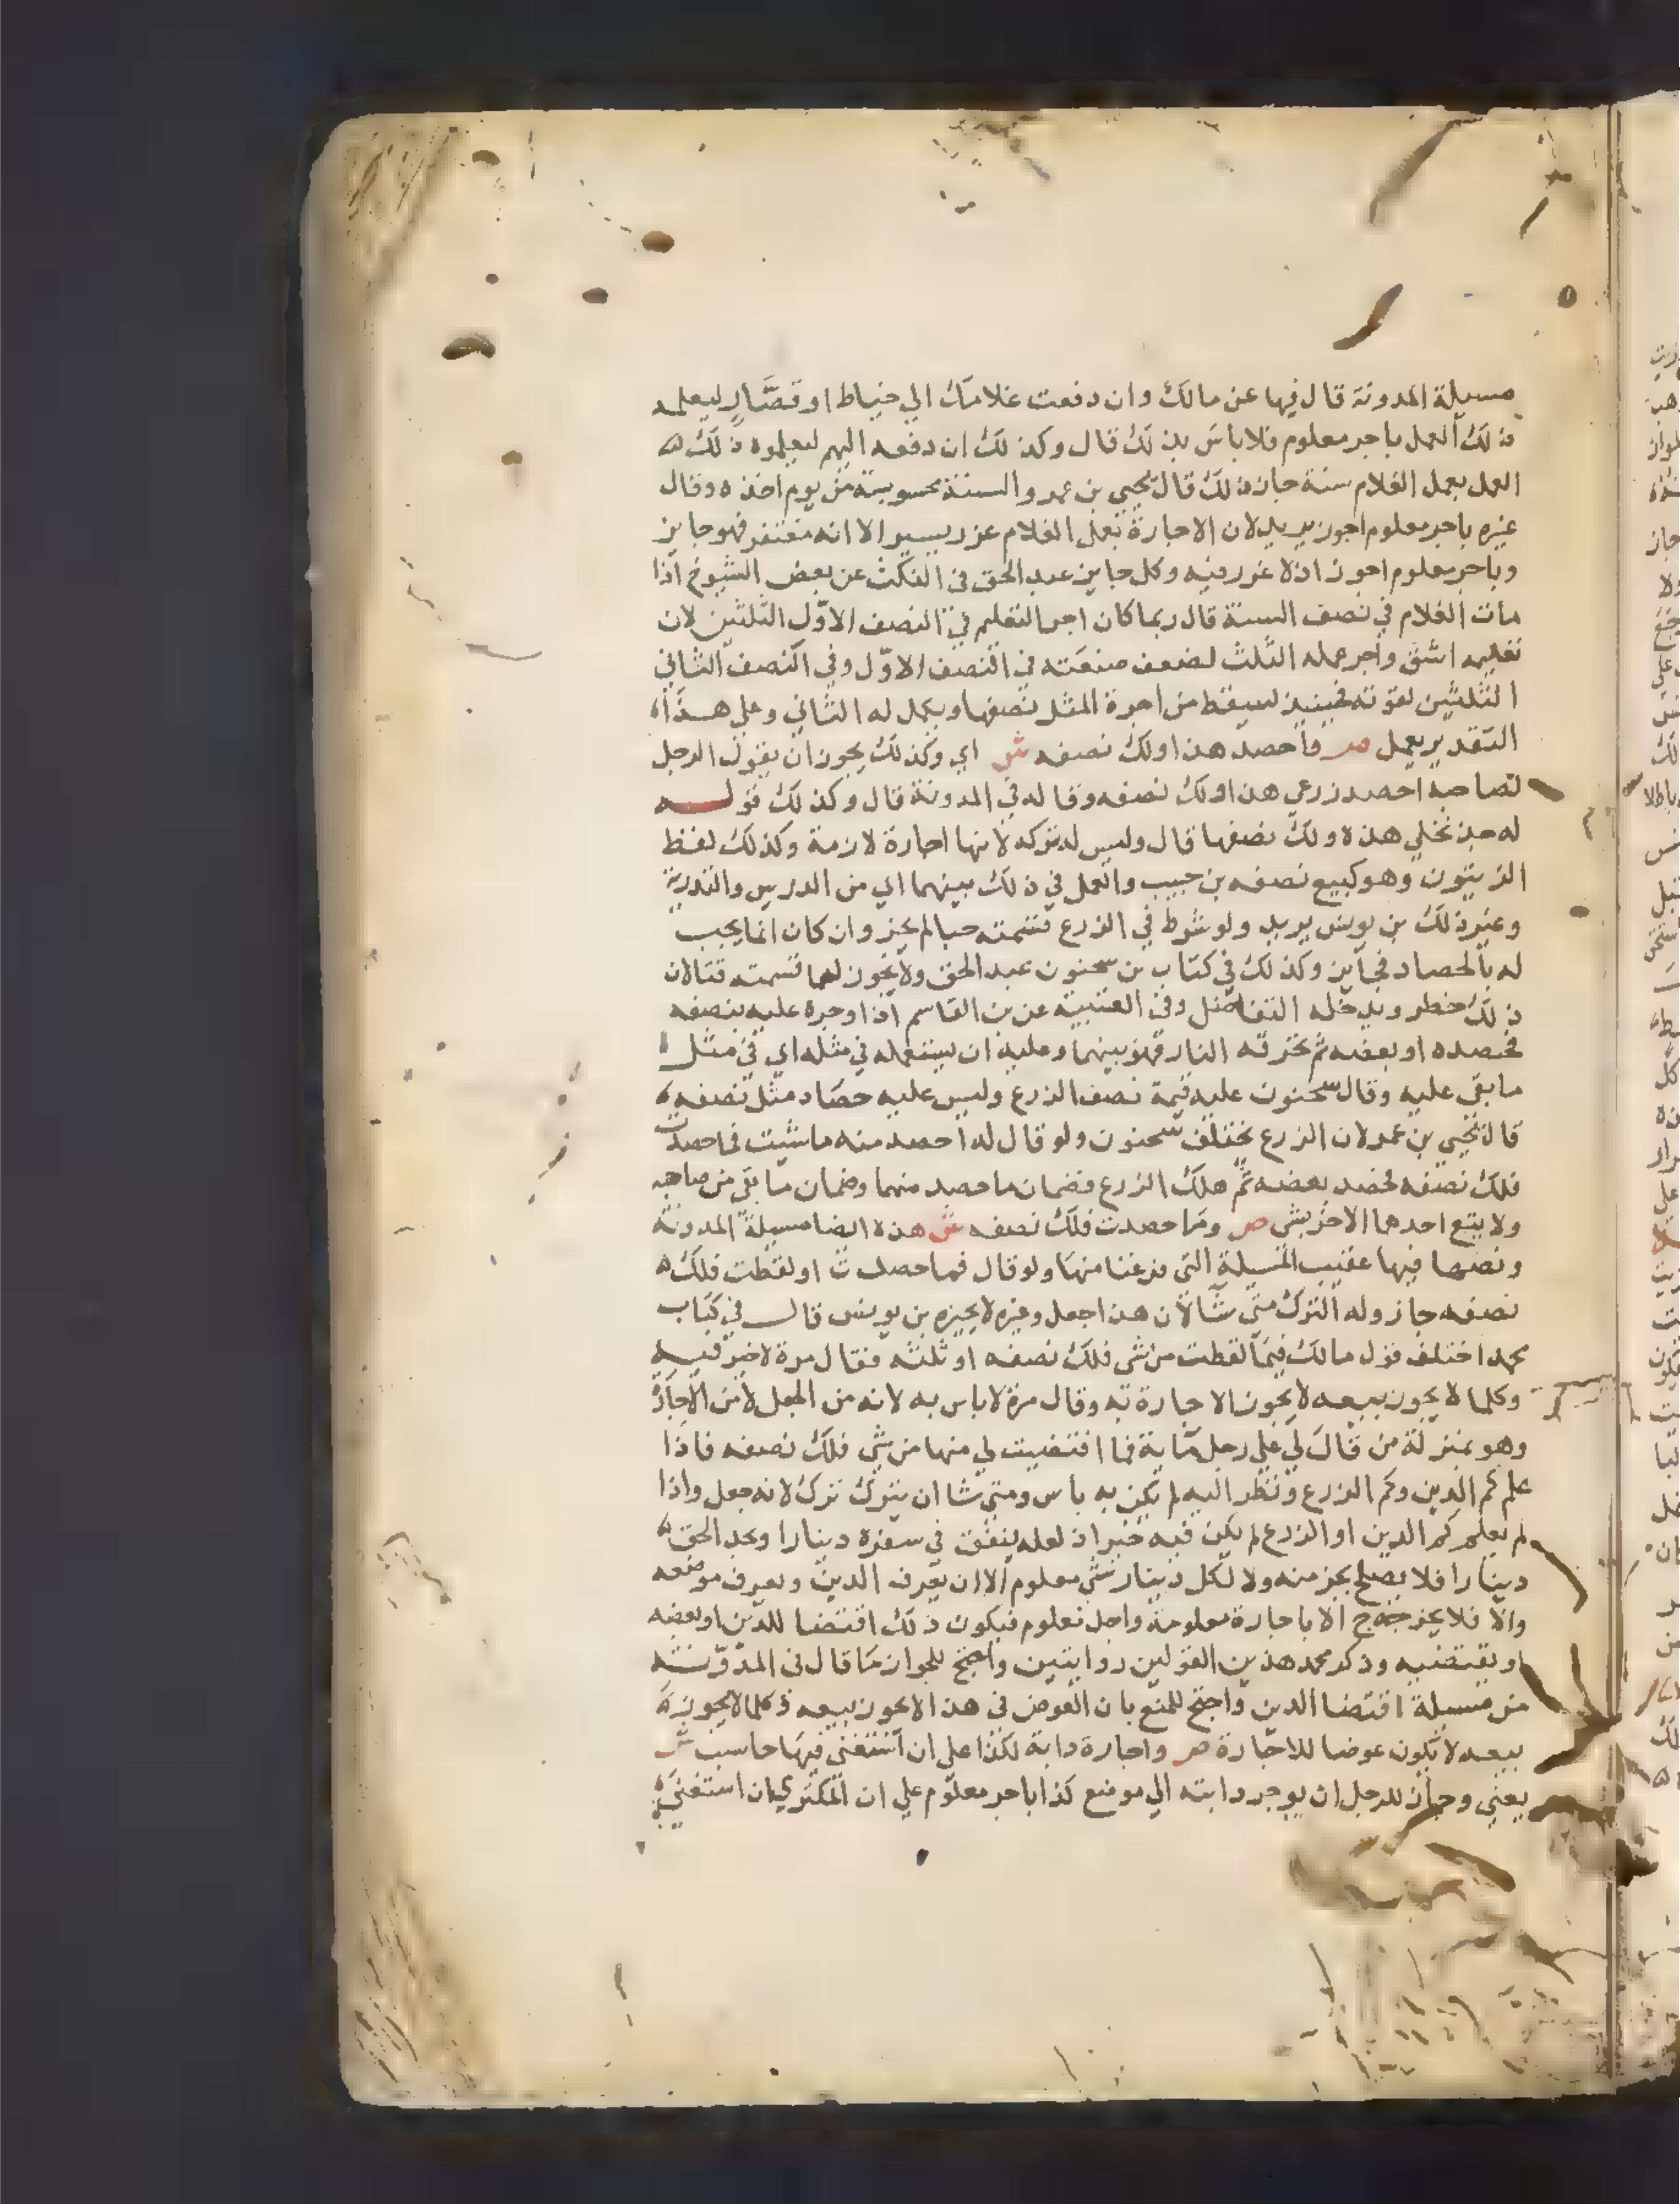 مسيلة المدونة قال فيها عن مالك وان دفعت غلامك الي خياط او قصَّارٍ ليعلمه
ذلك العمل باجر معلوم فلا باس بذلك قال وكذلك ان دفعه اليهم ليعلموه ذلك
العمل بعمل الغلام سنة جاز ذلك قال يحيي بن عمر والسنة محسوبة من يوم اخذه وقال
غيره باجر معلوم اجوز يريد لان الاجارة بعمل الغلام غرر يسير الا انه مغتفر فهو جايز
وباجر معلوم اجوز اذ لا غرر فيه وكل جايز عبد الحق في النكت عن بعض الشيوخ اذا
مات الغلام في نصف السنة قال ربما كان اجر التعليم في النصف الاوّل الثلثين لان
تعليمه اشق واجر عمله الثلث لضعف صنعته في النصف الاوّل وفي النصف الثاني
الثلثين لقوته فحينيذ يسقط من اجرة المثل نصفها ويكمل له الثاني وعلي هذا
التقدير يعمل ص واحصد هذا ولك نصفه ش اي وكذلك يجوز ان يقول الرجل
لصاحبه احصد زرعي هذا ولك نصفه وقاله في المدونة قال وكذلك قوله
له جذ نخلي هذه ولك نصفها قال وليس له تركه لانها اجارة لازمة وكذلك لقط
الزيتون وهو كبيع نصفه بن حبيب والعمل في ذلك بينهما الي من الدريس والتذرية
وغير ذلك بن يونس يريد ولو شرط في الزرع قسمته حبا لم يجز وان كان انما يجب
له بالحصاد فجايز وكذلك في كتاب بن سحنون عبد الحق ولا يجوز لهما قسمته قتا لان
ذلك خطر ويدخله التفاضل وفي العتبية عن بن القاسم اذا اوجره عليه بنصفه
فحصده او بعضه ثم تحرقه النار فهو بينهما وعليه ان يستعمله في مثله اي في مثل
ما بقي عليه وقال سحنون عليه قيمة نصف الزرع وليس عليه حصاد مثل نصفه
قال يحيي بن عمر لان الزرع يختلف سحنون ولو قال له احصد منه ما شيت فما حصدت
فلك نصفه فحصد بعضه ثم هلك الزرع فضمان ما حصد منهما وضمان ما بقي من صاحبه
ولا يتبع احدهما الاخر بشي ص وما حصدت فلك نصفه ش هذه ايضا مسيلة المدونة
ونصها فيها عقيب المسيلة التي فرغنا منها ولو قال فما حصدت او لقطت فلك
نصفه جاز وله الترك متي شا لان هذا جعل وغيره لا يجيزه بن يونس قال في كتاب
محمد اختلف قول مالك فيما لقطت من شي فلك نصفه او ثلثه فقال مرة لا خير فيه
وكلما لا يجوز بيعه لا يجوز الاجارة به وقال مرة لا باس به لانه من الجعل لا من الاجارة
وهو بمنزلة من قال لي علي رجل ماية فما اقتضيت لي منها من شي فلك نصفه فاذا
علم كم الدين وكم الزرع ونظر اليه لم يكن به باس ومتي شا ان يترك ترك لانه جعل واذا
لم يعلم كم الدين او الزرع لم يكن فيه خير اذ لعله ينفق في سفره دينارا ويجد الحق
دينارا فلا يصلح بجز منه ولا لكل دينار شي معلوم الا ان يعرف الدين ويعرف موضعه
والا فلا يخرج الا باجارة معلومة واجل معلوم فيكون ذلك اقتضا للدين او بعضه
او يقتضيه وذكر محمد هذين القولين روايتين واحتج للجواز ما قال في المدونة
من مسيلة اقتضا الدين واحتج للمنع بان العوض في هذا لا يجوز بيعه فكلما لا يجوز
بيعه لا يكون عوضا للاجارة ص واجارة دابة لكذا علي ان استغني فيها حاسب ش
يعني وجاز للرجل ان يوجر دابته الي موضع كذا باجر معلوم علي ان المكتري ان استغني